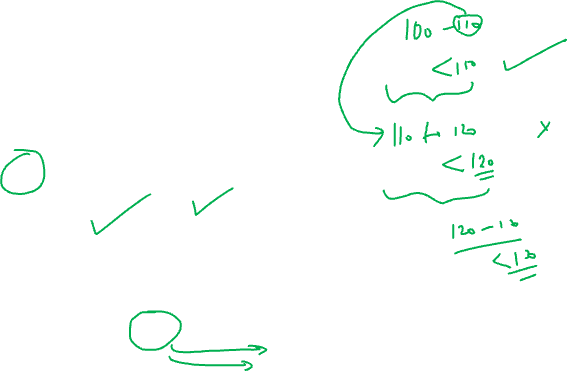 100 - 110
< 110
110 to 120
x
< 120
120 - 130
< 130